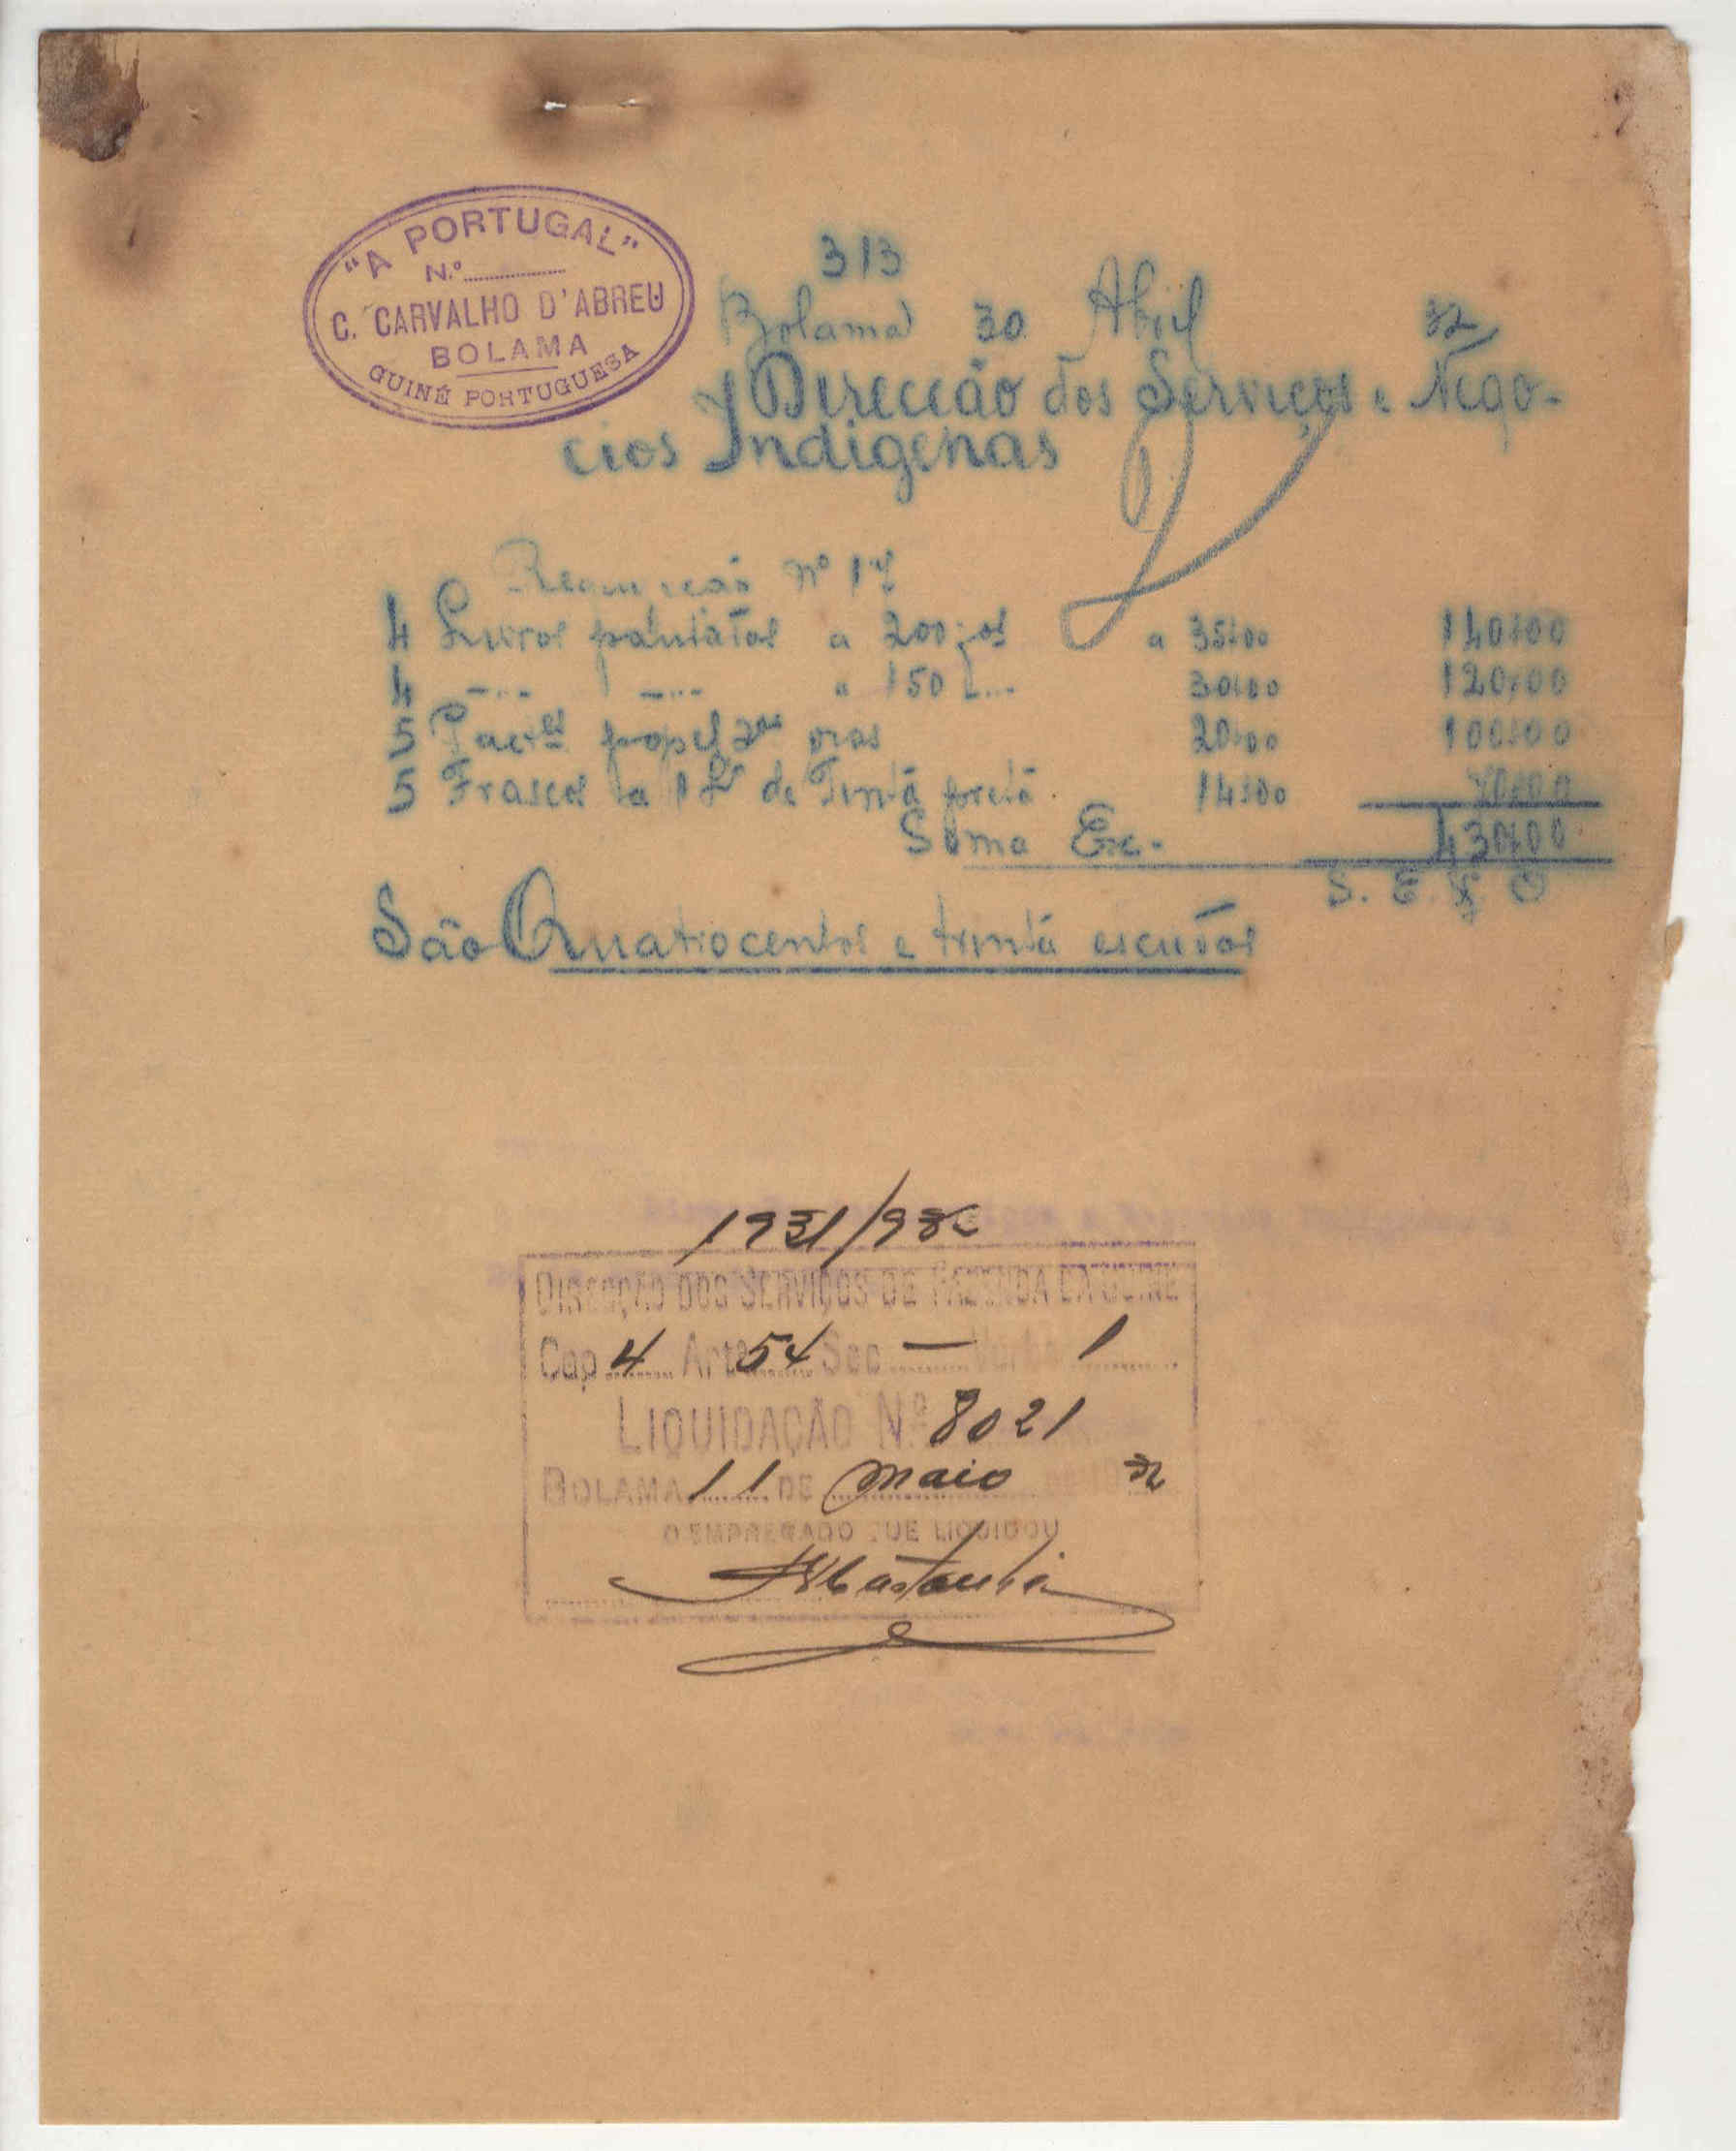 "A PORTUGAL"
N.º
C. CARVALHO D'ABREU
BOLAMA
GUINÉ PORTUGUESA
313
Bolama 30 Abril 32
Direcção dos Serviços e Nego-
cios Indigenas
Requisição Nº 17
4 Livros pautados a 200 a 35$00 140$00
4 -..- -..- " 150 30$00 120$00
5 papel 20$00 100$00
5 Frascos de Tinta preta 14$00 70$00
Soma Esc. 430$00
S. E. & O
São Quatrocentos e trinta escudos
1931/932
DIRECÇÃO DOS SERVIÇOS DE FAZENDA DA GUINÉ
Cap 4 Artº 54 Sec — Verba 1
LIQUIDAÇÃO N.º 8021
BOLAMA 11 DE Maio DE 19 32
O EMPREGADO QUE LIQUIDOU